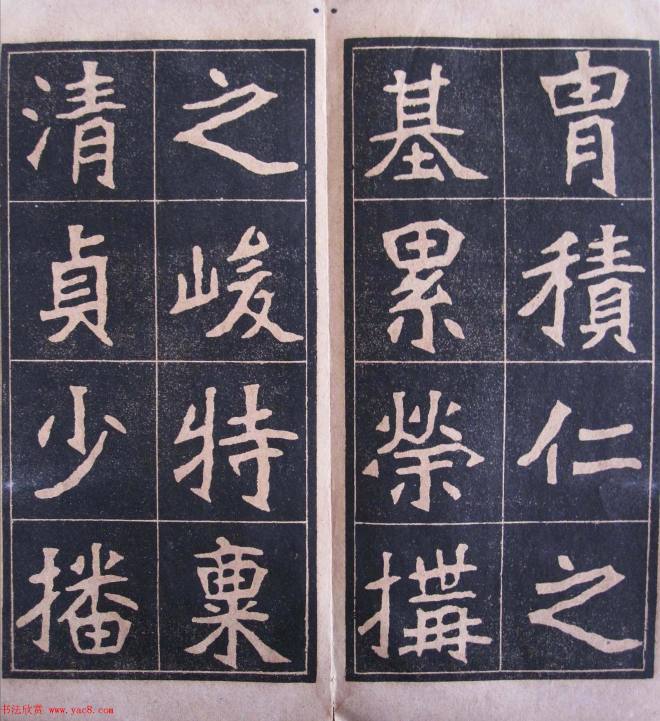 胄積仁之
基累榮搆
之峻特稟
清貞少播
书法欣赏 www.yac8.com